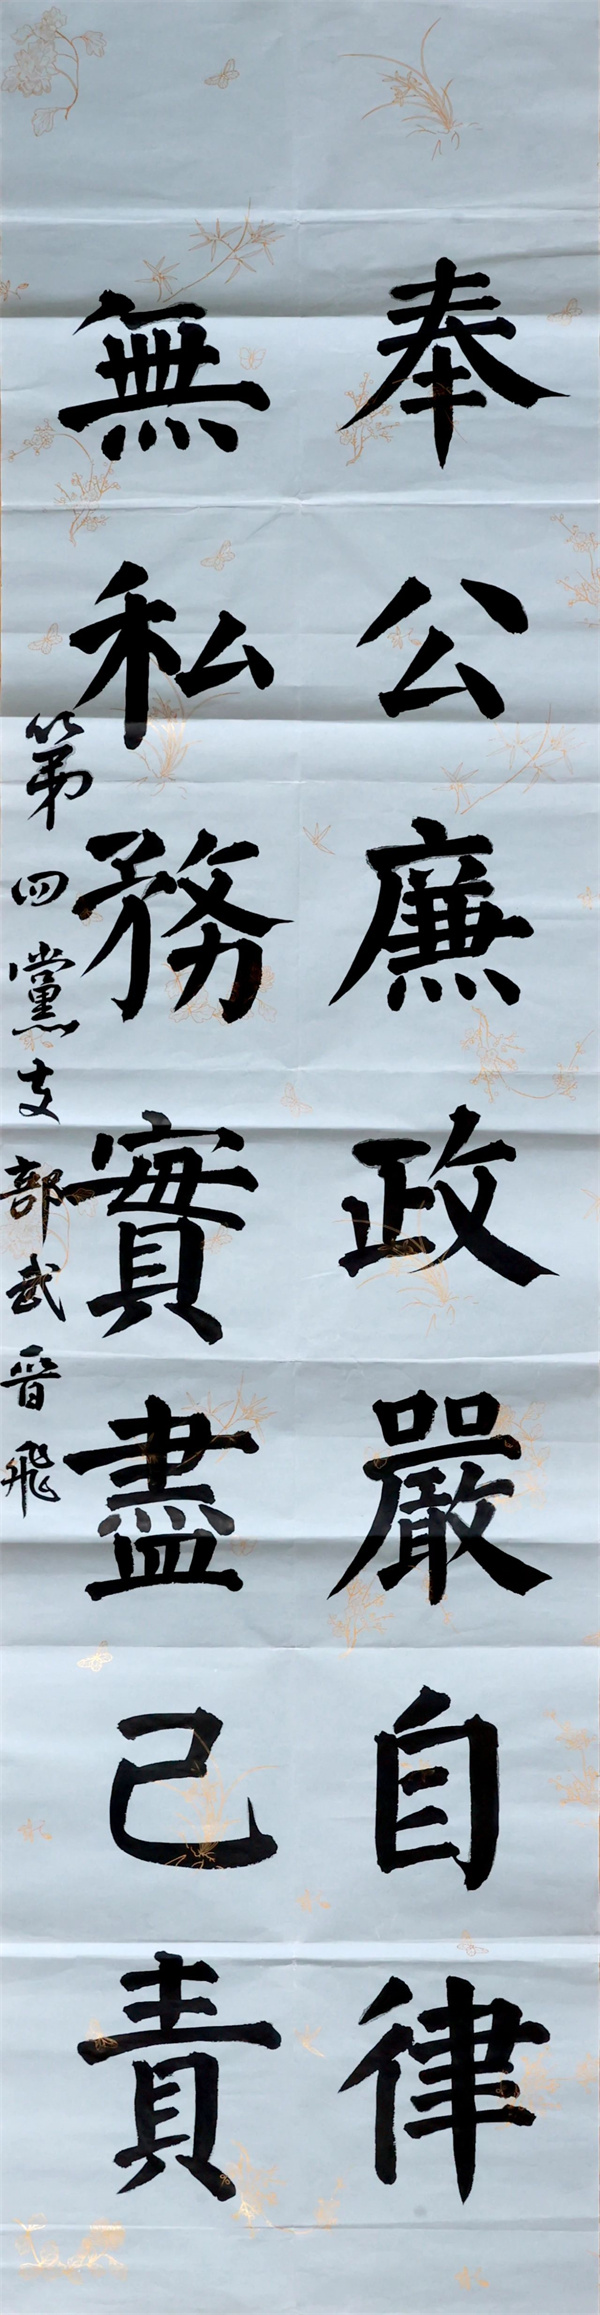 奉公廉政嚴自律
無私務實盡己責
第四黨支部武晋飛